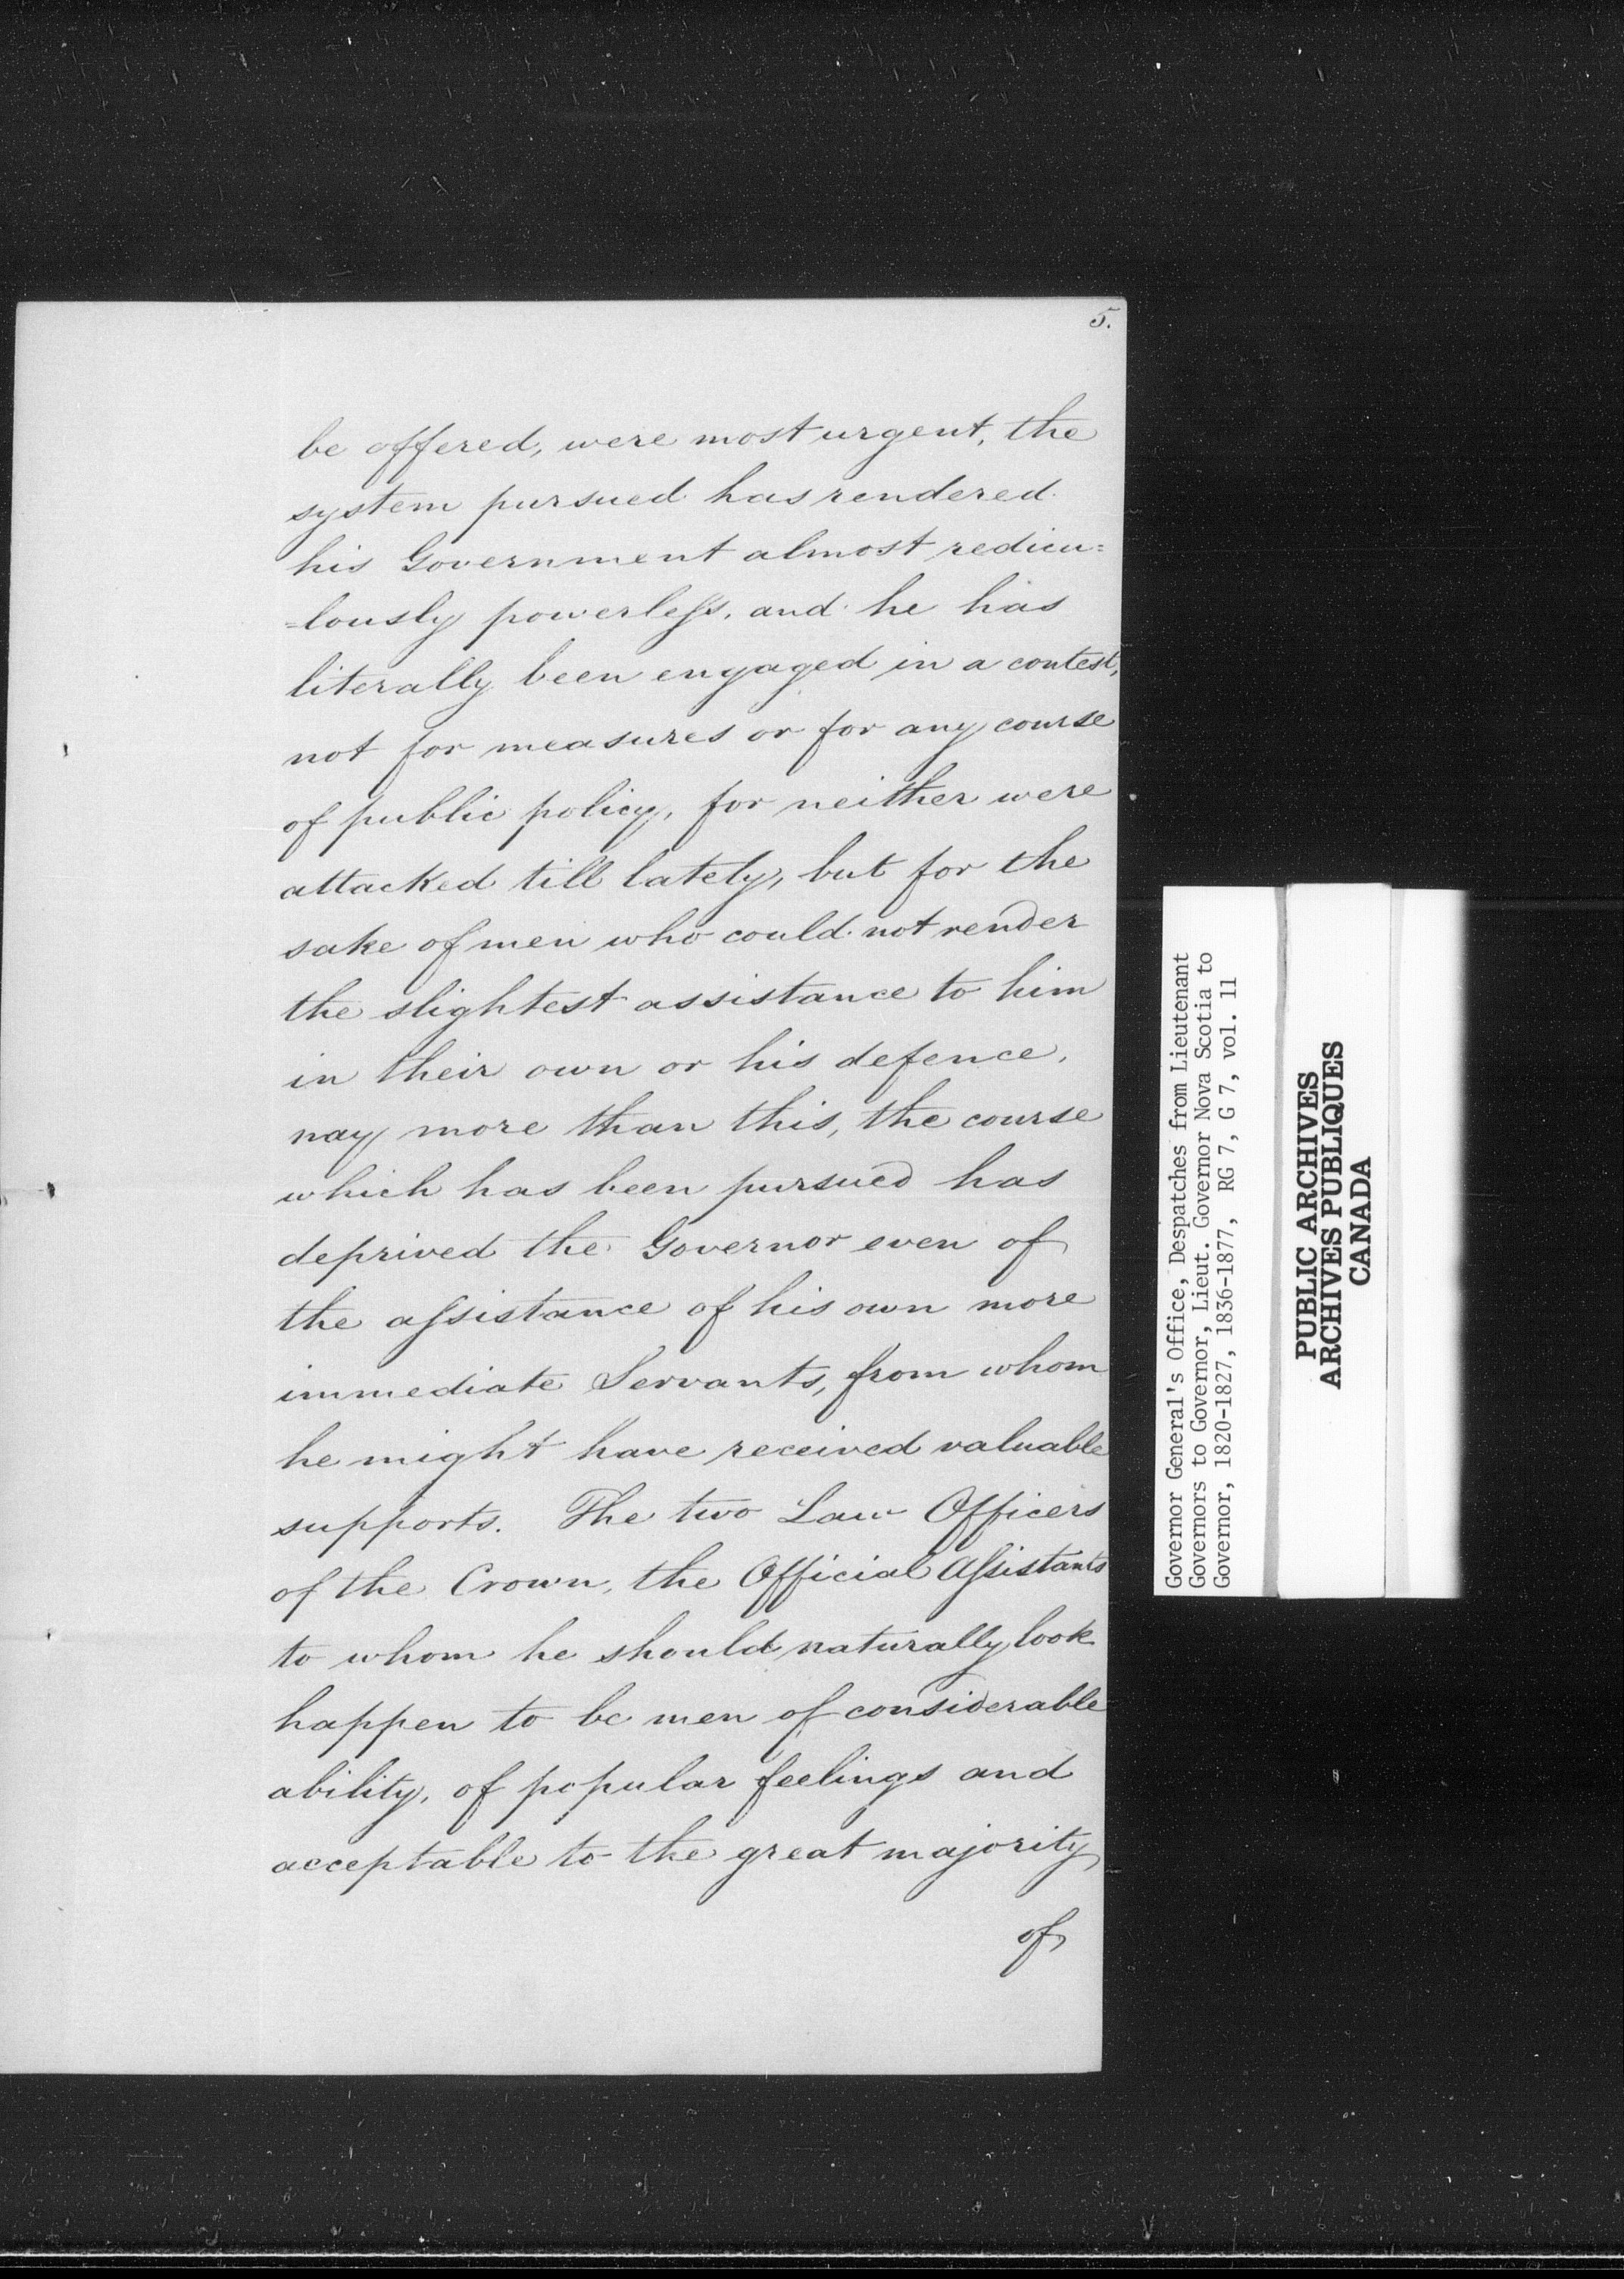 5.
be offered, were most urgent, the
system pursued has rendered
his Government almost redicu=
=lously powerless, and he has
literally been engaged in a contest,
not for measures or for any course
of public policy, for neither were
attacked till lately, but for the
sake of men who could not render
the slightest assistance to him
in their own or his defence,
nay more than this, the course
which has been pursued has
deprived the Governor even of
the assistance of his own more
immediate Servants, from whom
he might have received valuable
supports. The two Law Officers
of the Crown, the Official Assistants
to whom he should naturally look
happen to be men of considerable
ability, of popular feelings and
acceptable to the great majority
of
Governor General's Office, Despatches from Lieutenant
Governors to Governor, Lieut. Governor Nova Scotia to
Governor, 1820-1827, 1836-1877, RG 7, G 7, vol. 11
PUBLIC ARCHIVES
ARCHIVES PUBLIQUES
CANADA